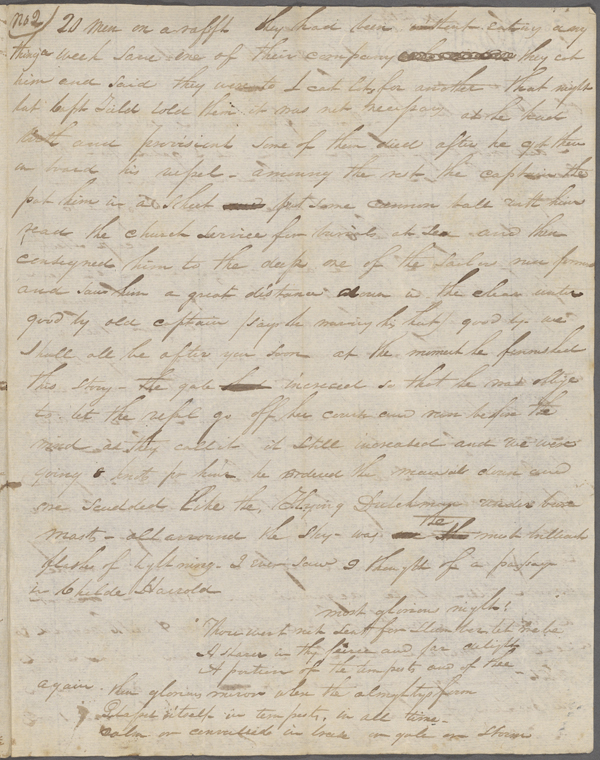 No 2 20 men on a rafft they had been without eating any
thing a week save one of their company they eat
him and said they were to cast lots for another that night
but Capt Field told them it was not necessary as he had
both and provisions some of them died after he got them
on board his vessel - amoung the rest the captain the
put him in a sheet put some cannon ball with him
read the church service for burials at sea and then
consigned him to the deep one of the sailors run forward
and saw him a great distance down in the clear water
good by old captain says he waving his hat good by we
shall all be after you soon at the moment he finnished
this story - the gale increased so that he was oblige
to let the vessel go off her course and run before the
wind as they call it it still increased and we were
going 8 knots pr hour he ordered the mainsail down and
we scudded like the Flying Dutchman under bare
masts - all arround the sky was the most brilliant
flashes of lightning I ever saw I thought of a passage
in Childe Harrold
most glorious night!
Thou wert not sent for slumber let me be
A sharer in thy feirce and far delight
A portion of the tempest and of thee
again. thou glorious mirror where the almightys form
Glasses itself in tempests, in all time -
calm or convulsed in breeze or gale or storm